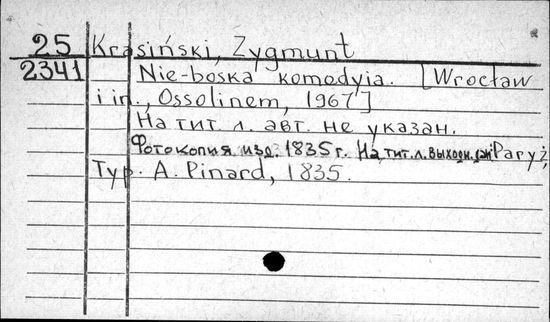 25 Krasiński, Zygmunt
2341 Nie-boska komodyia. [Wrocław
i in., Ossolinem, 1967]
На тит. л. авт. не указан.
Фотокопия изд. 1835 г. На тит. л. выходн. дан. Paryż,
Typ. A. Pinard, 1835.